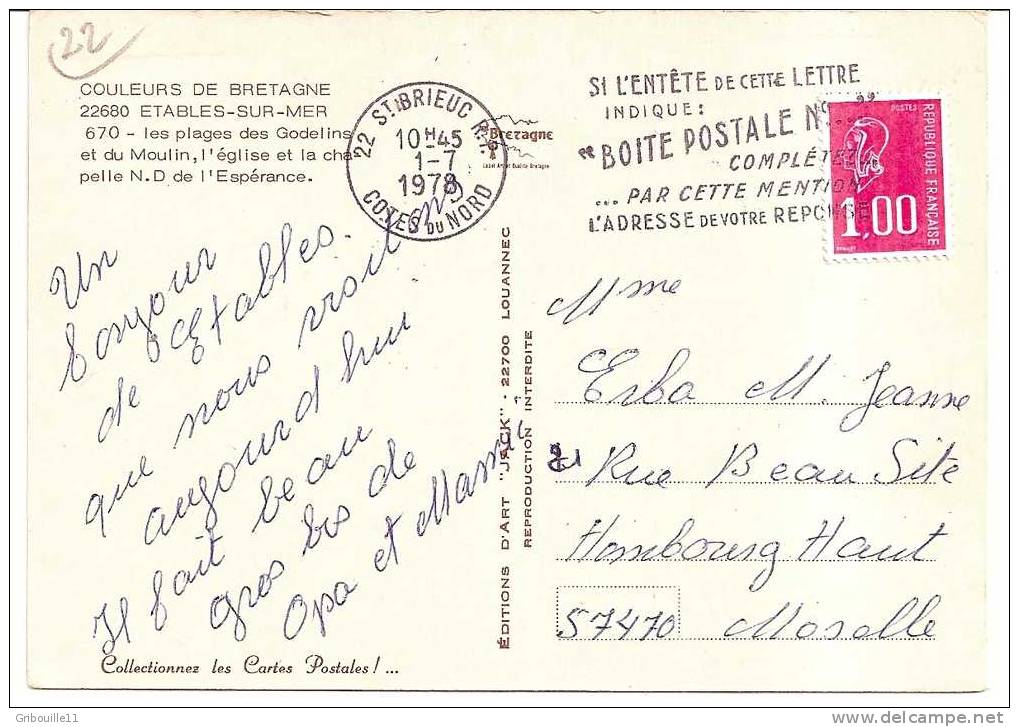 22
COULEURS DE BRETAGNE
22680 ETABLES-SUR-MER
670 - les plages des Godelins
et du Moulin, l'église et la cha-
pelle N.D de l'Espérance.
22 ST BRIEUC R.P.
10 H 45
1-7
1978
COTES DU NORD
Bretagne
SI L'ENTÊTE DE CETTE LETTRE
INDIQUE :
"BOITE POSTALE No ... "
COMPLÉTEZ
... PAR CETTE MENTION
L'ADRESSE DE VOTRE REPONSE
POSTES
REPUBLIQUE FRANÇAISE
1,00
Un
bonjour
de Etables.
que nous
aujourd hui
Il fait beau
Gros bis de
Opa et Mami
Mme
Erba M. Jeanne
21 Rue Beau Site
Hombourg Haut
57470 Moselle
ÉDITIONS D'ART "JACK" - 22700 LOUANNEC
REPRODUCTION INTERDITE
Collectionnez les Cartes Postales ! ...
Gribouille11
delcampe.net